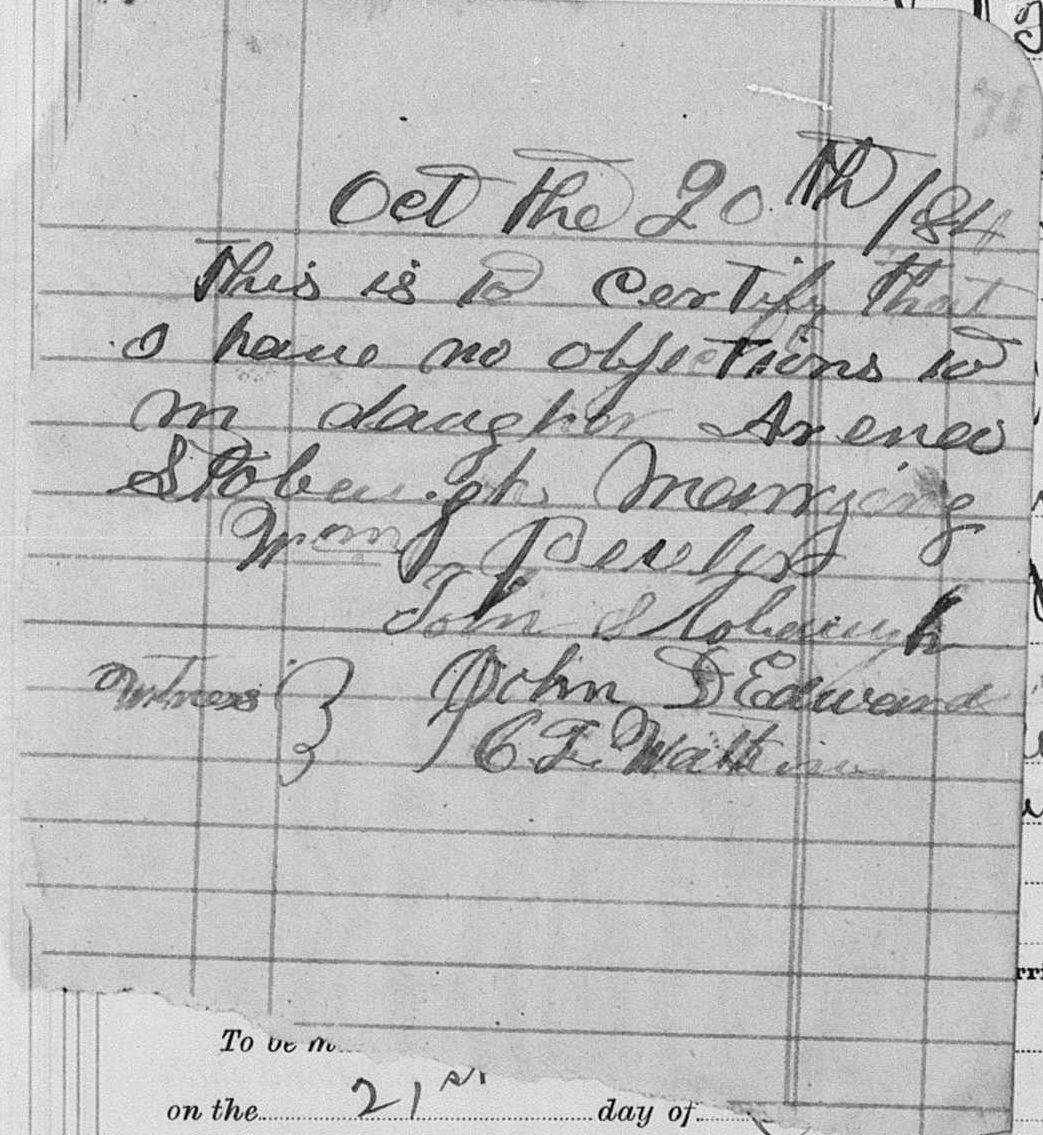 71
Oct the 20th /84
This is to Certify that
I have no objections to
m daughter Arena
Stobaugh Marrying
John Stobaugh
Witness } John D Edward
C. L. Watkins
To be m
on the 21st day of